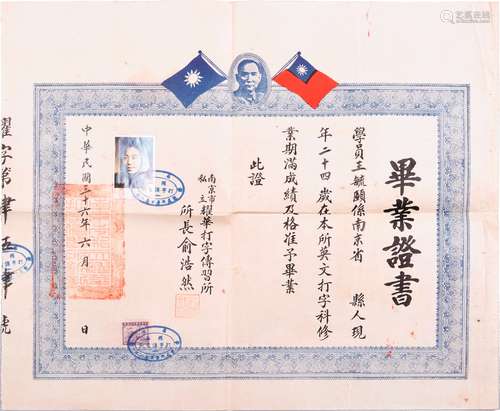 畢業證書
學員王毓頤係南京省 縣人現
年二十四歲在本所英文打字科修
業期滿成績及格准予畢業
此證
南京市私立耀華打字傳習所
所長俞浩然
中華民國三十六年六月 日
耀字第肆伍肆號